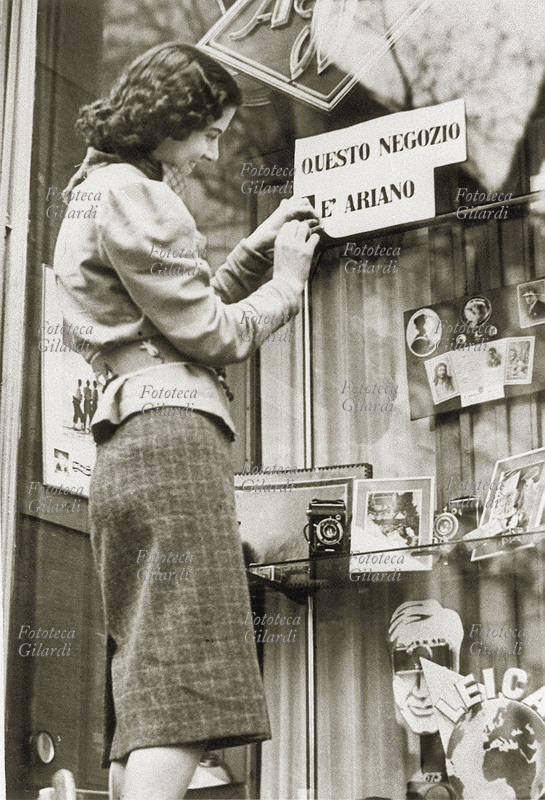 QUESTO NEGOZIO
E' ARIANO
LEICA
Fototeca
Gilardi
Fototeca
Gilardi
Fototeca
Gilardi
Fototeca
Gilardi
Fototeca
Gilardi
Fototeca
Gilardi
Fototeca
Gilardi
Fototeca
Gilardi
Fototeca
Gilardi
Fototeca
Gilardi
Fototeca
Gilardi
Fototeca
Gilardi
Fototeca
Gilardi
Fototeca
Gilardi
Fototeca
Gilardi
Fototeca
Gilardi
Fototeca
Gilardi
Fototeca
Gilardi